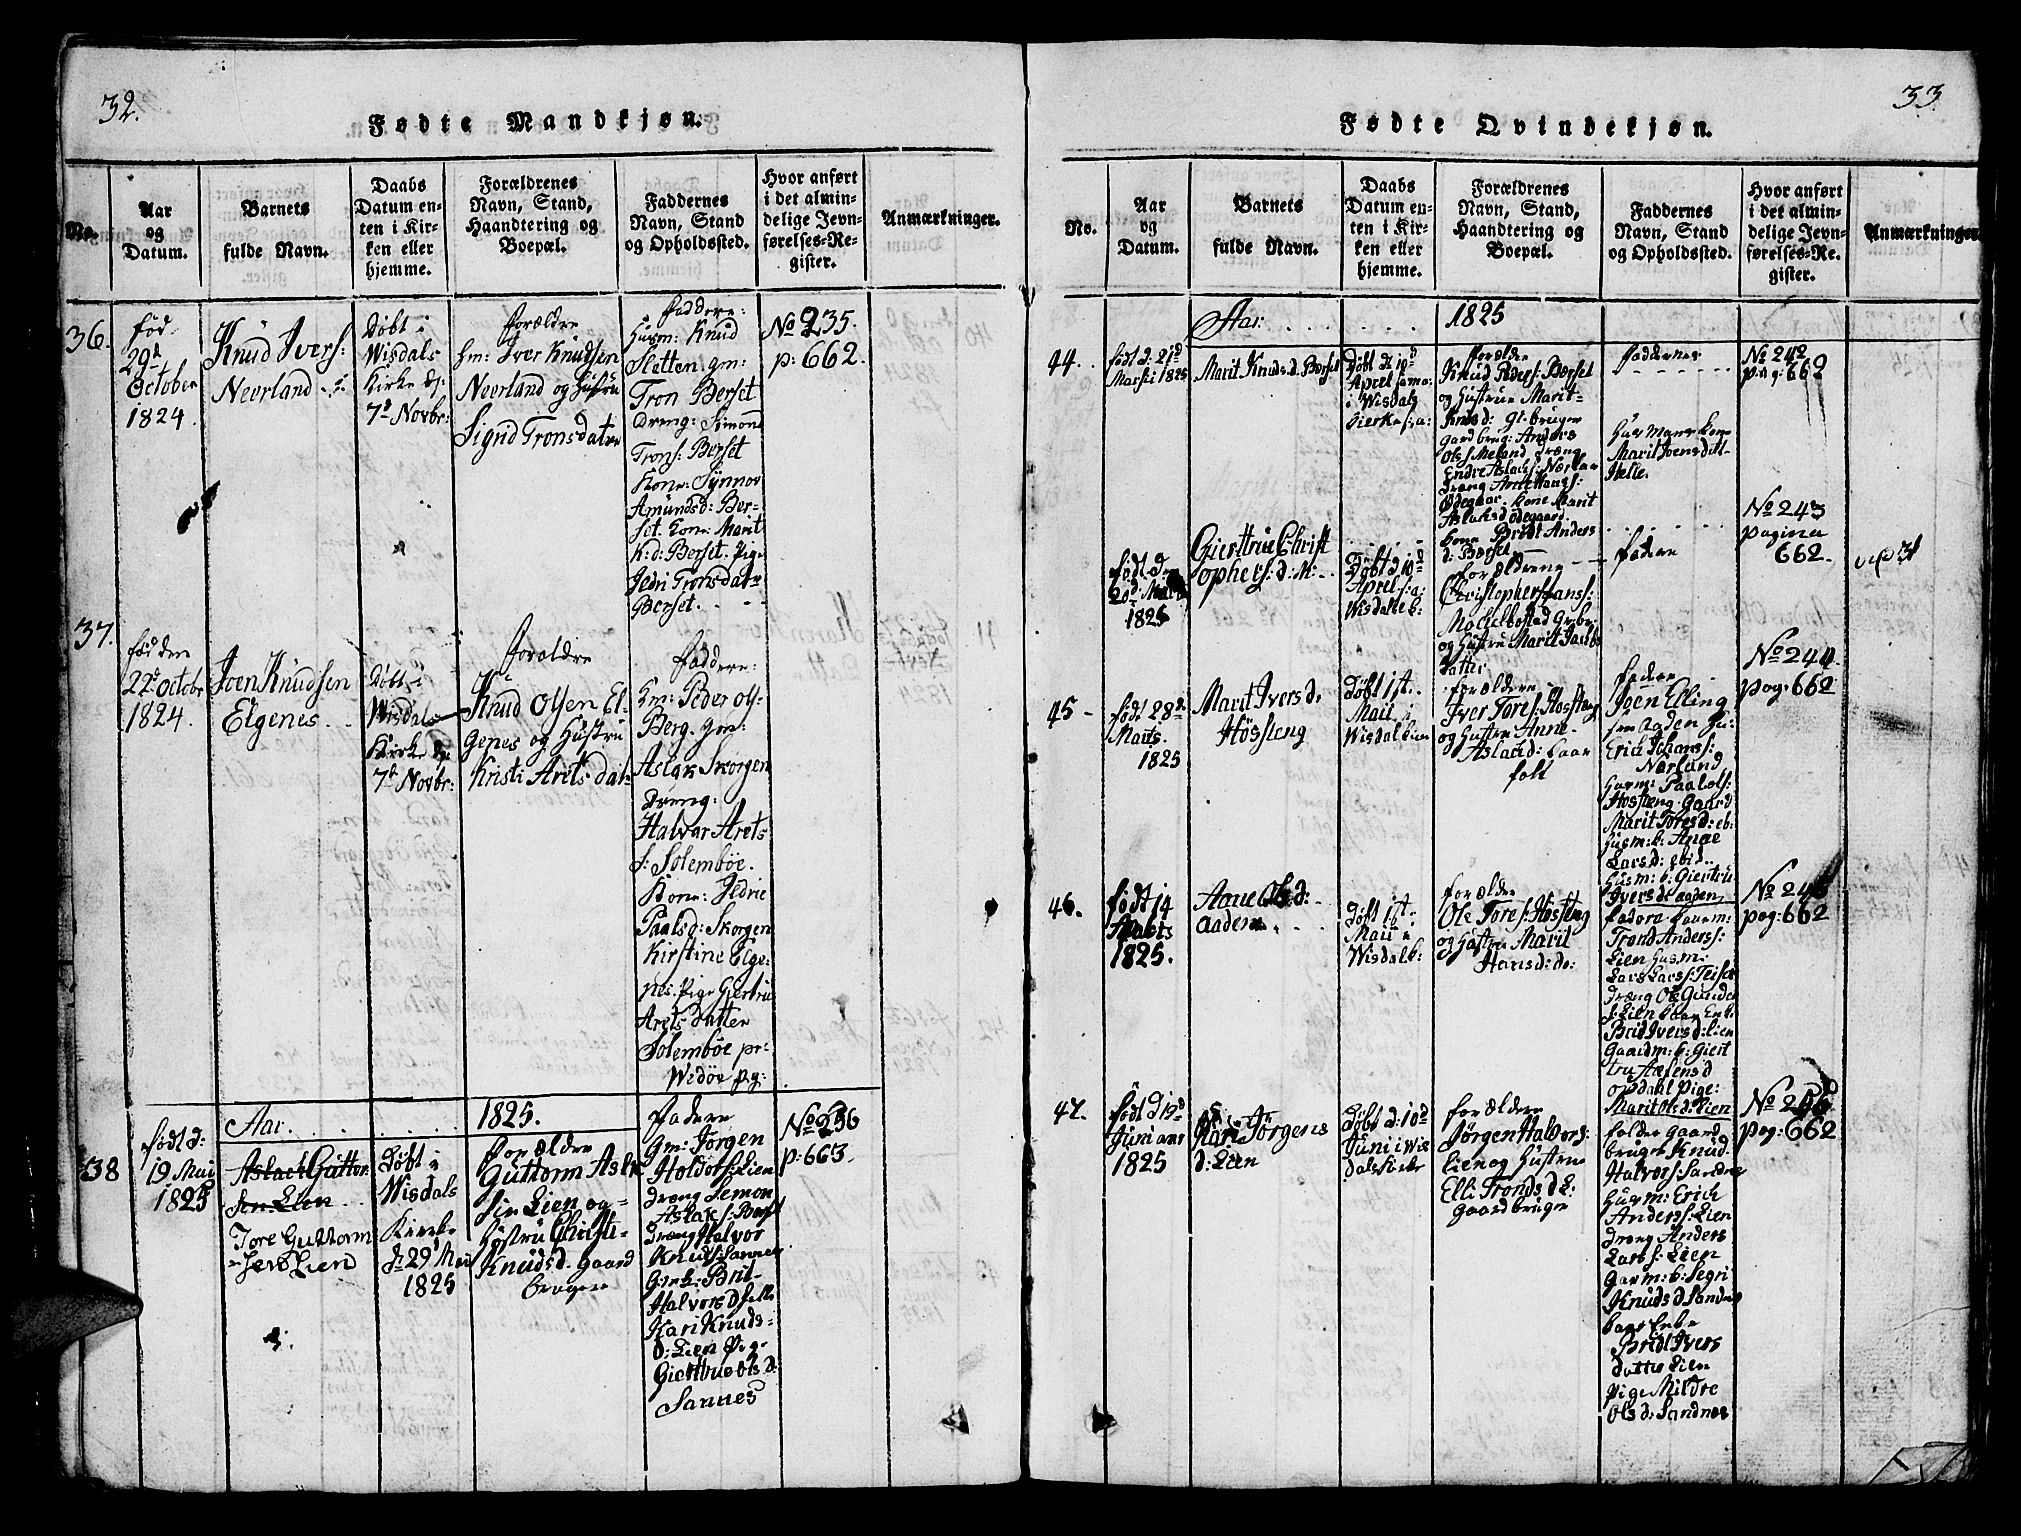 32.
Fødte Mandkjøn.
No.
Aar
og
Datum.
Barnets
fulde Navn.
Daabs
Datum en-
ten i Kir-
ken eller
hjemme.
Forældrenes
Navn, Stand,
Haandtering og
Boepæl.
Faddernes
Navn, Stand
og Opholdssted.
Hvor anført
i det almin-
delige Jevn-
førelses-Re-
gister.
Anmærkninger.
36.
fød
29d
October
1824
Knud Ivers:
Neerland
Døbt i
Wisdals
Kirke d:
7d Novbr:
Forældre
Hm: Iver Knudsen
Neerland og Hustru
Signd Tronsdatr
Faddere:
Husm: Knud
Sletten gm:
Tron Berset
Dreng: Simond
Trons: Berset
Kone: Synnov
Amunds d: Ber-
set. Kone: Marit
K: d: Berset. Pige
Jedri Tronsdatr
Berset.
No 235.
p: 662.
37.
fød den
22d Octobr
1824.
Joen Knudsen
Elgenes
Døbt i
Wisdals
Kirke d:
7d Novbr:
Forældre
Knud Olsen El-
genes og Hustru
Kristi Arets dat-
Faddere:
Hm: Peder Ols:
Berg. gm:
Aslak Skorgen
Dreng:
Halvar Arets
s: Solembøe.
Kone: Jedrie
Paals d: Skorgen
Kirstine Elge-
nes. Pige Giertru
Arets datter
Solembøe pr:
Wedøe pig:
Aar. 1825.
38
født d:
19 Mai
1825
Aslack Guttor
sen Lien
Tore Guttorm
sen Lien
Døbt i
Wisdals
Kirke
d 29 Mai
1825
Forældre
Guttorm Aslak
sen Lien og
Hustru Christi
Knuds d. Gaard
bruger
Fadere
Gm: Jørgen
Holdofs: Lien
dræng Semon
Aslak s: Berset
Dræng Halvor
Knuts: Sannes
Gmk: Brit
Halvors d Helle
Kari Knuds-
d: Lien Pige
Giertrue Ols d:
Sannes
No 236
p: 663.
33.
Fødte Qvindekjøn.
No.
Aar
og
Datum.
Barnets
fulde Navn.
Daabs
Datum en-
ten i Kir-
ken eller
hjemme.
Forældrenes
Navn, Stand,
Haandtering og
Boepæl.
Faddernes
Navn, Stand
og Opholdssted.
Hvor anført
i det almin-
delige Jevn-
førelses-Re-
gister.
Anmærkninger.
Aar: 1825
44.
født d. 21d
Marsii 1825
Marit Knuds. d. Berset
Døbt d 10d
Aprel
i Wisdals
Forældre
Knud Peders: Berset
og Hustrue Marit
Knus d: Gl: bruger
Gaardbrug: Anders
Ols: Meland dræng
Endre Aslachs: Nærlan
Dræng Arne Haags:
Ødegaar. Kone Marit
Aslaks d Ødegaard.
Kone Bridt Anders
d: Berset
Faddernes
Husmans kone
Marit Joens datt
Helle.
No 242
pag: 662
født d
20d Marti
1825
Gierttrue Christ
ophers: d: M:
Døbt d 10d
Aprel s: a:
Wisdals k:
Forældrene
Christopher Hans:
Mochelbostad Grbr
og Hustrue Marit Jacobs
datter
Fadere
No 243
pagina
662.
45
født 28d
Mars.
1825
Marit Ivers d.
Høssteng
Døbt 1st.
Maii i
Wisdalkirn
Forældre
Iver Tores: Hossteng
og Hustru Anne
Aslaksd: baar
folk
Fadere
Joen Elling
sen aaden Gu:
Erich Johans:
Nærland
Husm: Paal Ols:
Hossteng. Gaard
Marit Tores d: eb:
Husm: k: Anne
Lars d: ebid.
Husm: k: Giertru
Ivers d: aaden
No 244.
pag: 662
46.
født 14
1825.
Anne Ols d:
aaden
Døbt 1st.
Maii i
Wisdalk:
Forældre
Ole Tores: Hossteng
og Hustru Marit
Hans d: do:
Fadere Husm:
Trond Anders:
Lien Husm:
Lars Lars: Teiset
dræng Ole Gunde
s: Lien
Brit Ivers d: Lien
Gaardm: k: Giert
tru Stefens d
opdaal Pige:
Marit Ols d: Lien
No 245
pag: 662
47.
født d 19d
1825
Kari Jørgens
d: Lien
Døbt d: 10d
Juni i Wis
dalskirke
Forældre
Jørgen Halvors:
Lien og Hustrue
Elli Tronds d L:
Gaardbruger
Gaard
bruger Knud
Halvors: Sandnes
Husm: Erich
Anders: Lien
Dræng Anders
Lars s: Lien
Garm: k: Segri
Knuds d Sandnes
Bridt Ivers
datter Lien
Pige Mildre
Ols d: Sandnes
pag: 662